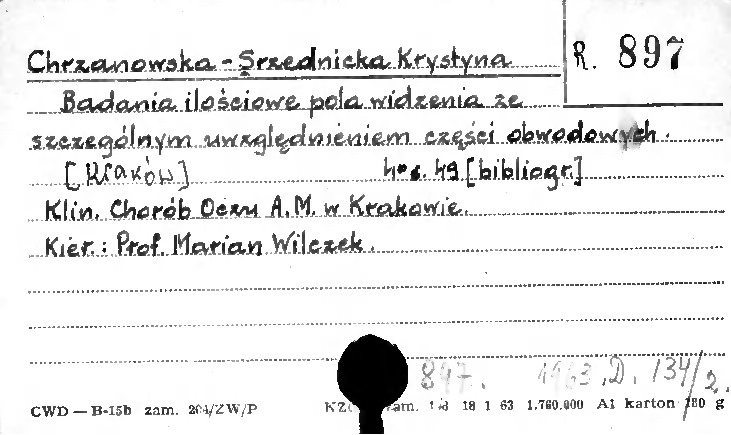 Chrzanowska - Srzednicka Krystyna
R. 897
Badania ilościowe pola widzenia ze
szczególnym uwzględnieniem części obwodowych.
[Kraków] 4° s. 49 [bibliogr.]
Klin. Chorób Oczu A.M. w Krakowie.
Kier.: Prof. Marian Wilczek.
897. 1963.D. 134/2.
CWD — B-15b zam. 204/ZW/P zam. 18 1 63 1.760.000 A1 karton 180 g